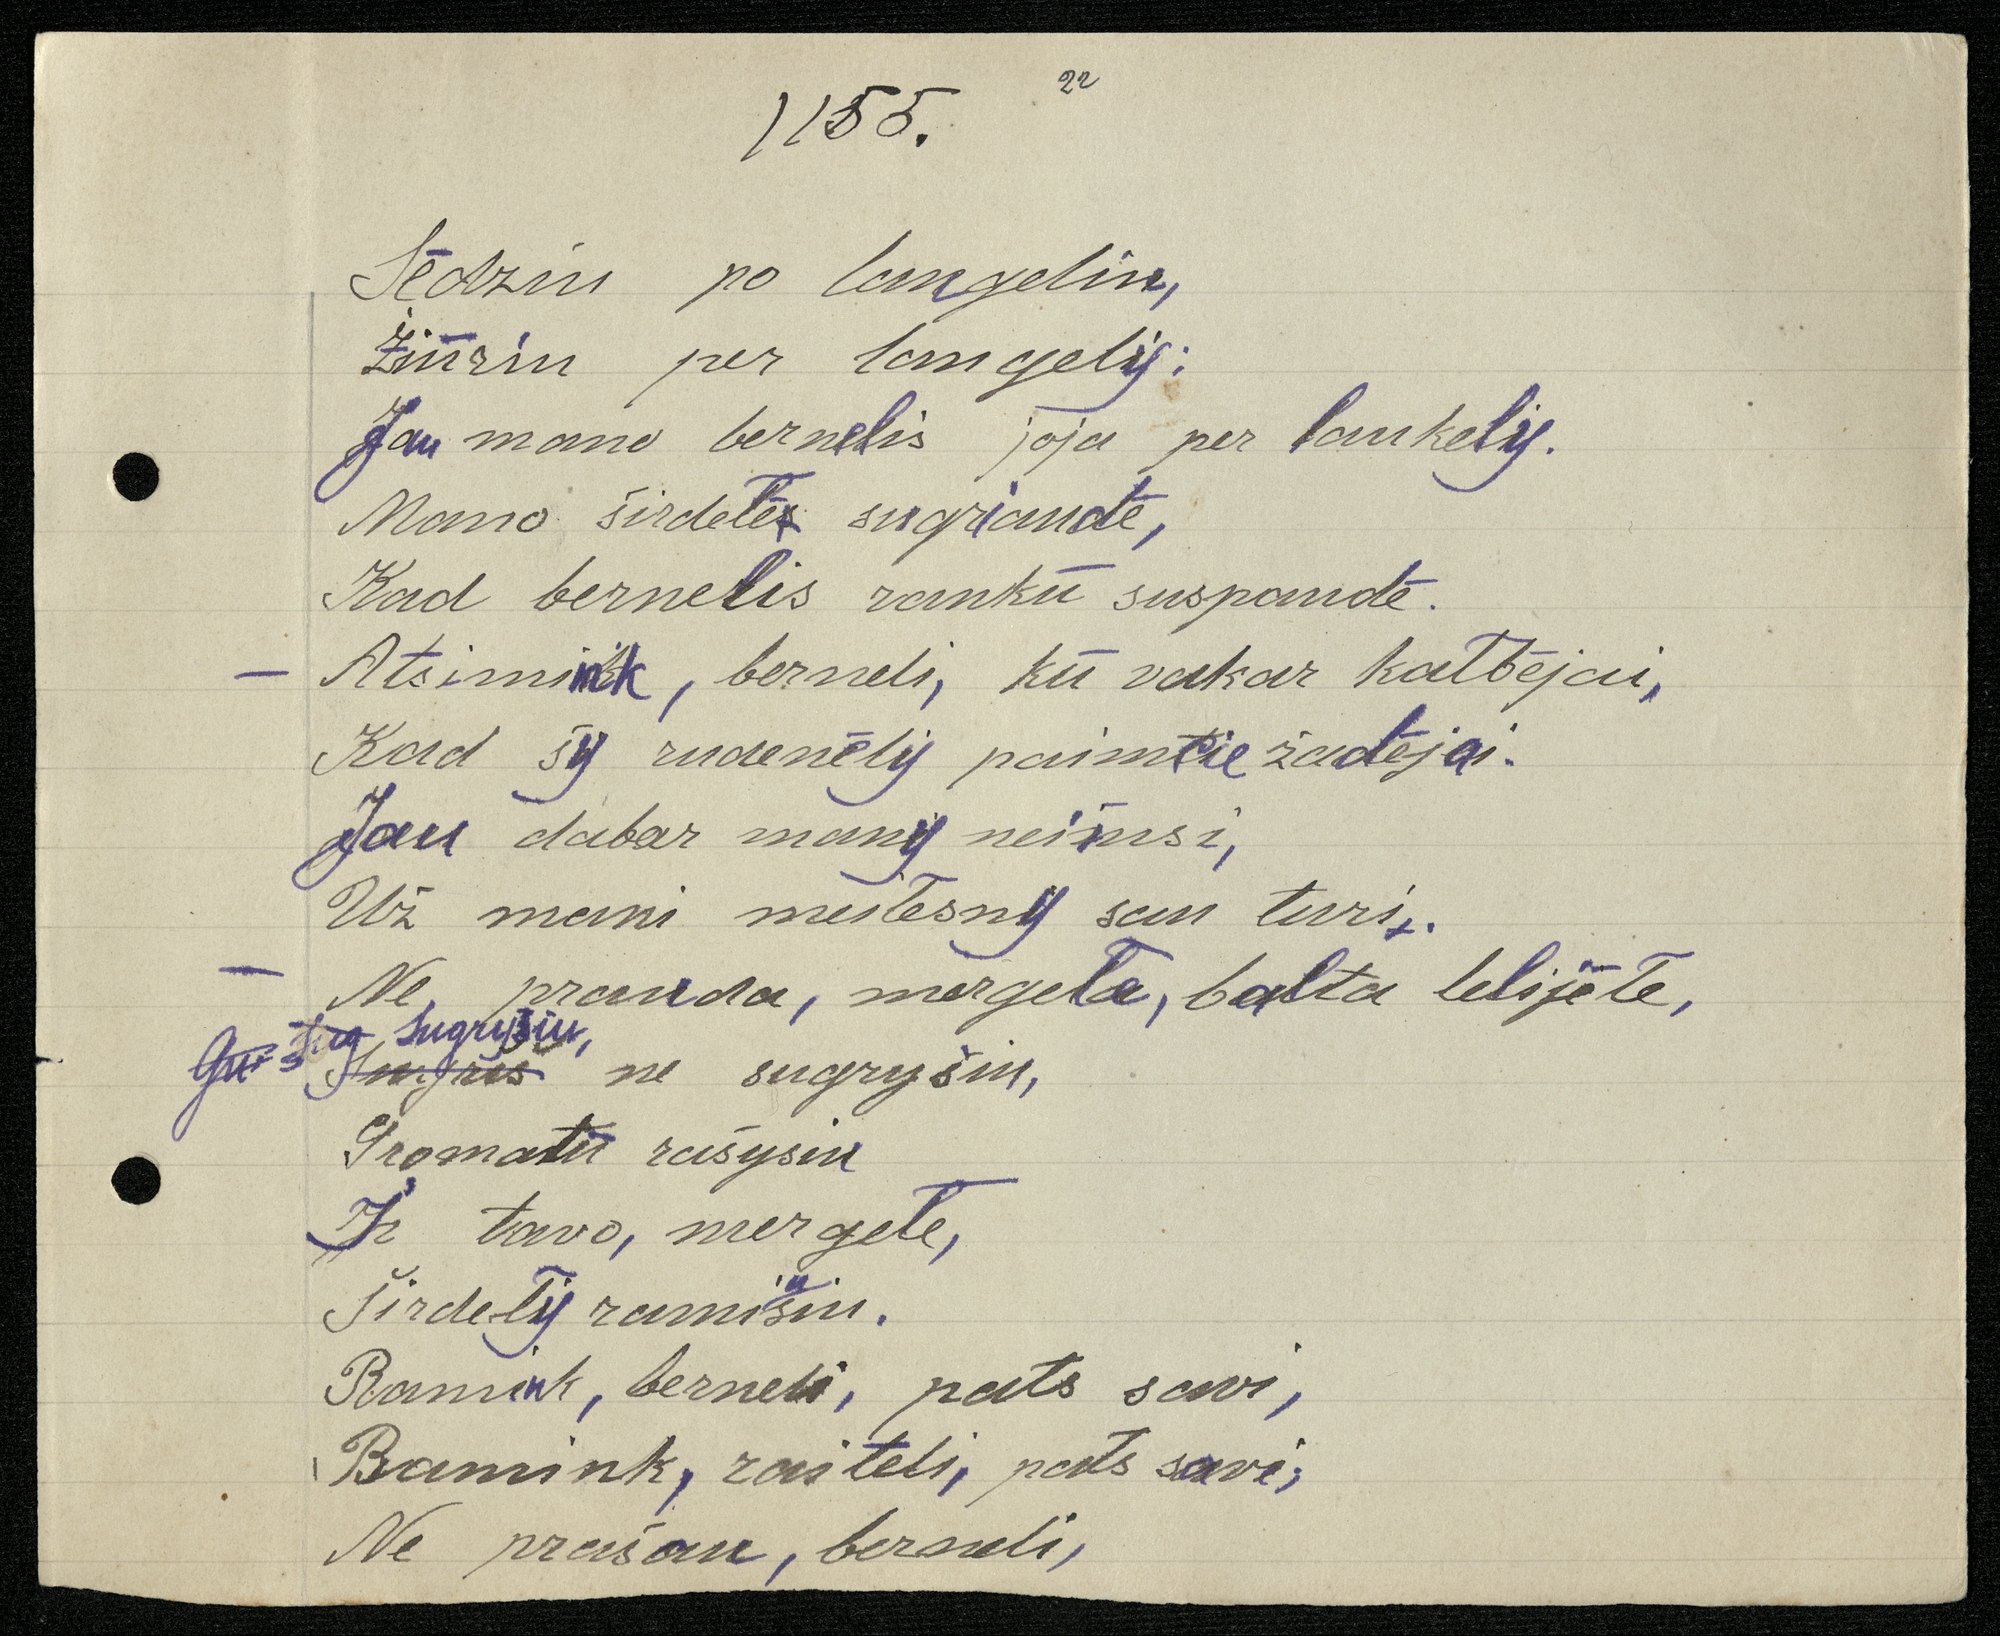 22
1155.
Sėdziu po langeliu,
Žiūriu per langelį:
Jau mano bernelis joja per laukelį.
Mano širdelē sugriaudė,
Kad bernelis rankū suspaudė.
– Atsimink, berneli, kū vakar kalbėjai,
Kad šį rudenėlį paimcie žadėjai.
Jau dabar manį neimsi,
Už mani meilesnį sau turi.
– Ne prauda, mergela, balta lelijėle,
Sugryšiu, ne sugryšiu,
Gromatū rašysiu
Ir tavo, mergele,
Širdelį ramįsiu.
Ramink, berneli, pats savi,
Ramink, raiteli, pats savi;
Ne prašau, berneli,